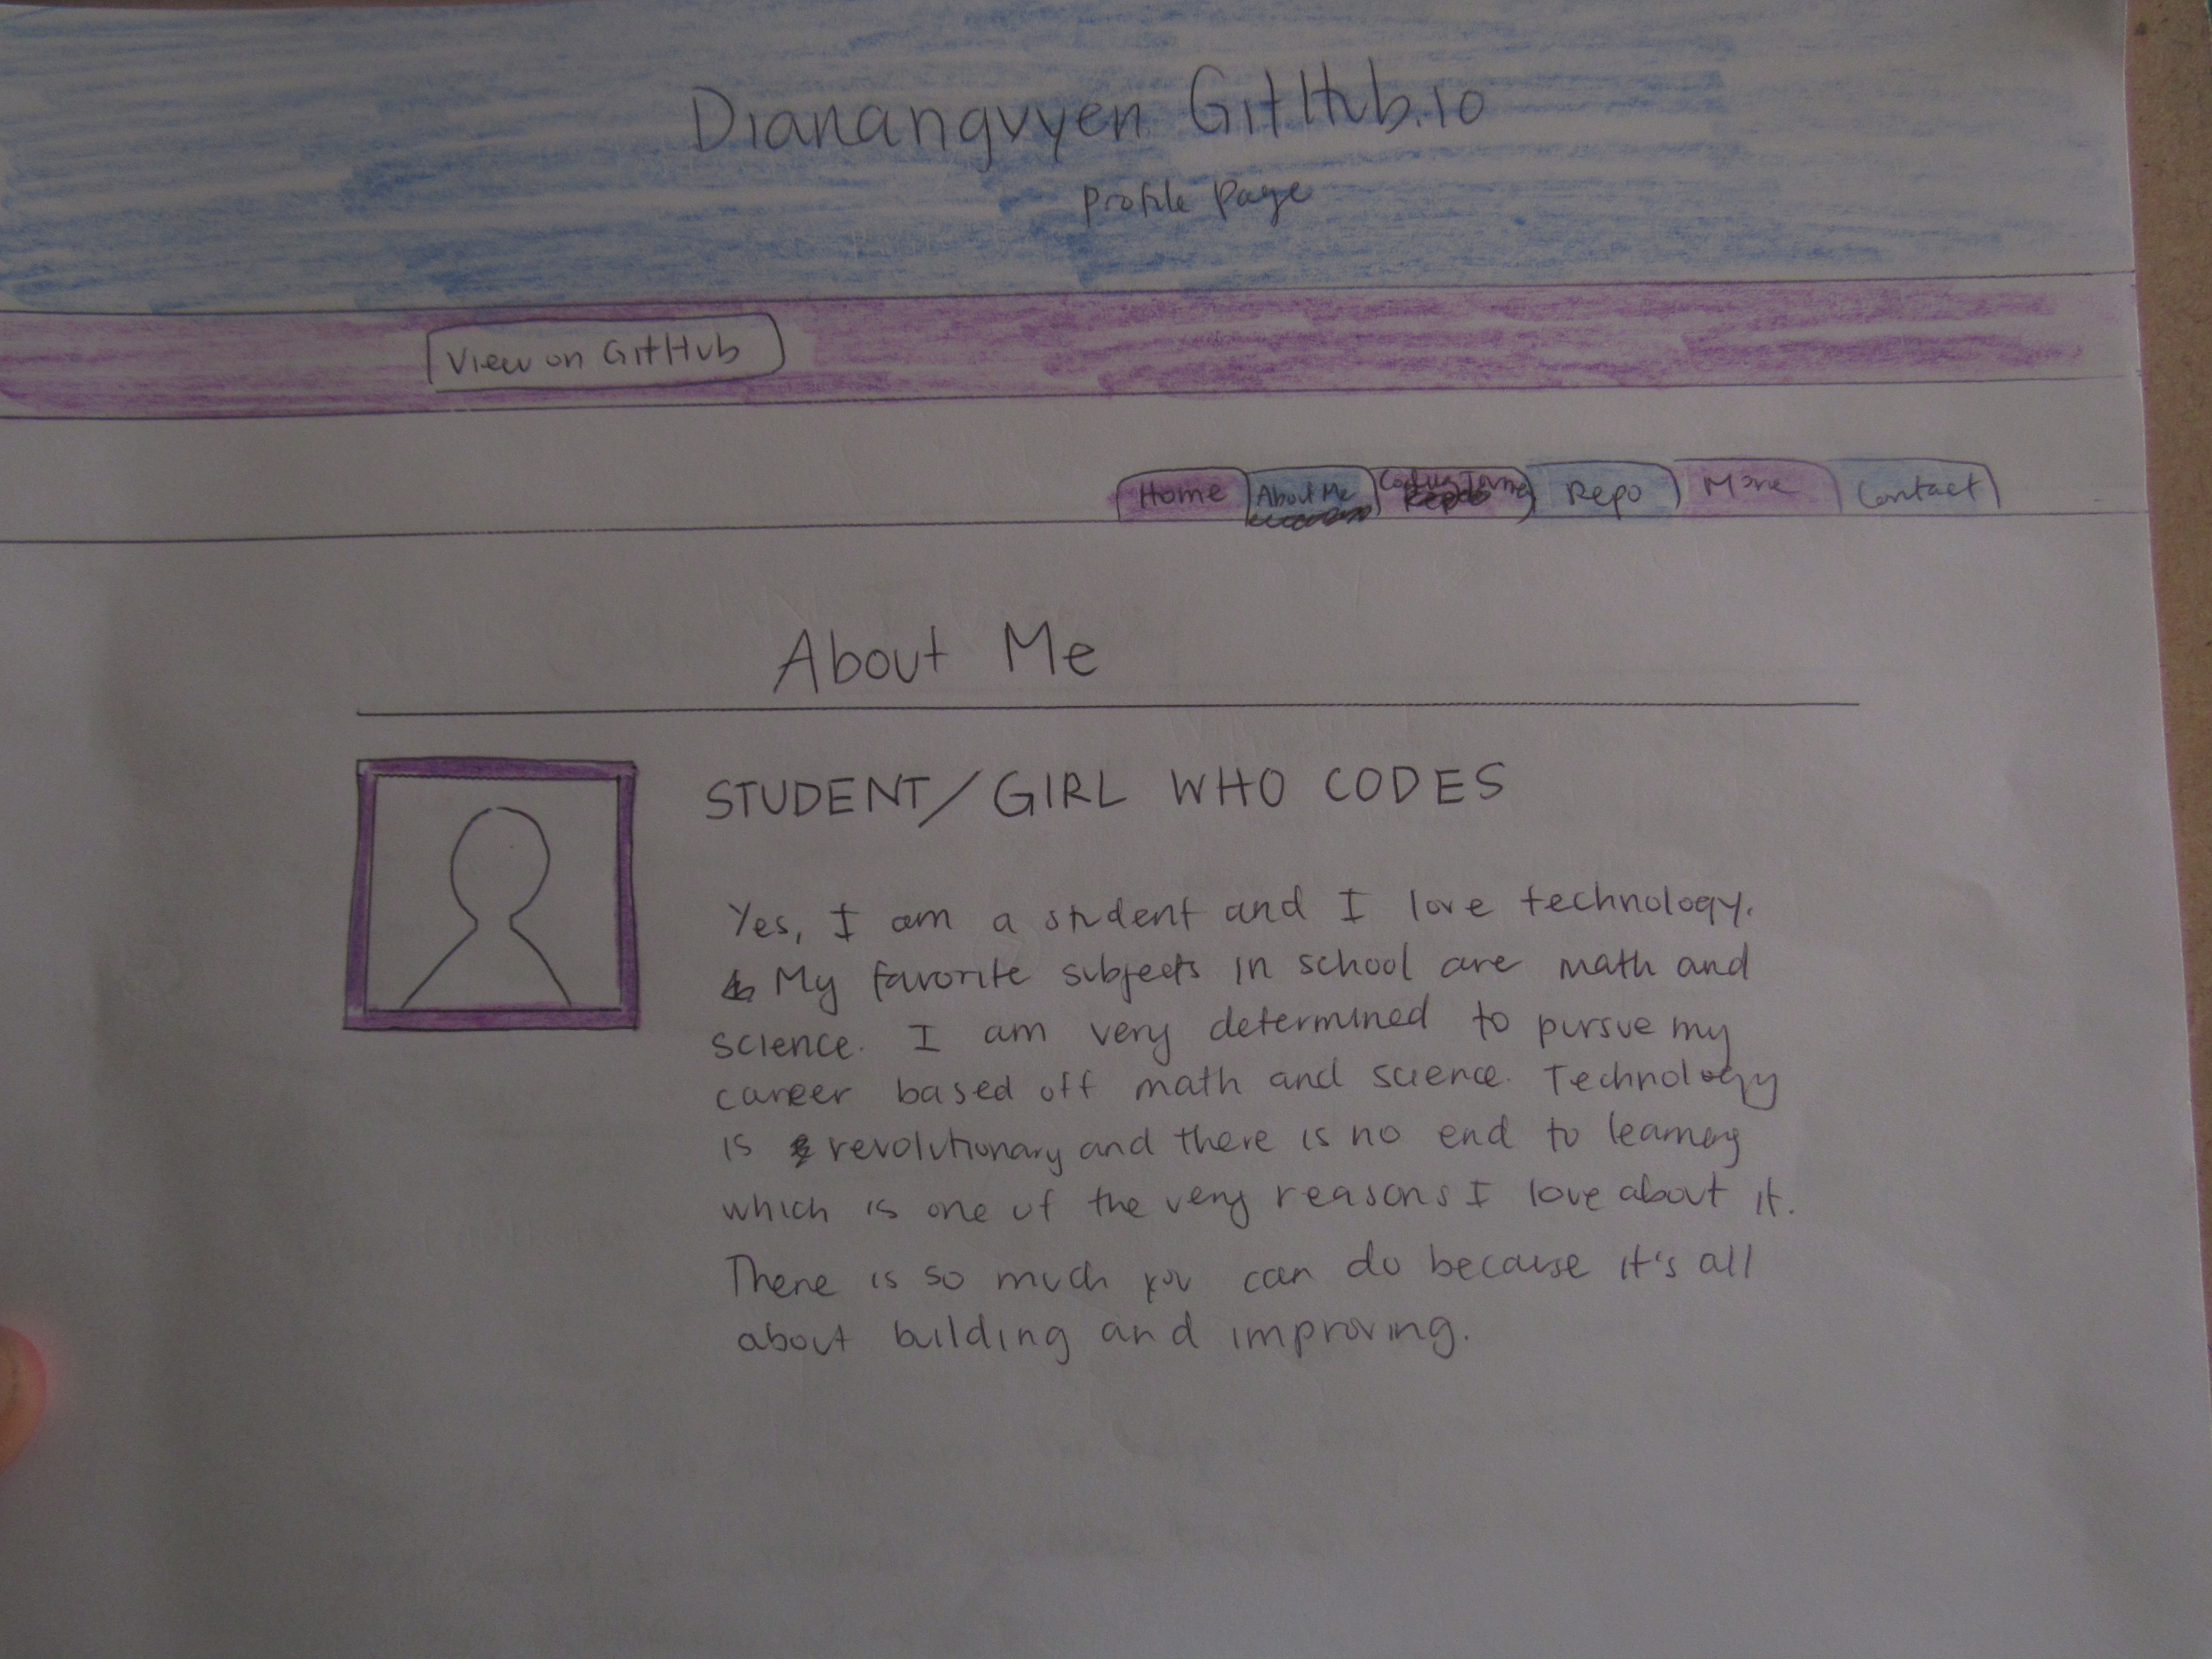 Dianangvyen GitHub.io
Profile Page
View on GitHub
Home About Me Coding Journey Repo More Contact
About Me
STUDENT/GIRL WHO CODES
Yes, I am a student and I love technology.
My favorite subjects in school are math and
science. I am very determined to pursue my
career based off math and science. Technology
is revolutionary and there is no end to learning
which is one of the very reasons I love about it.
There is so much you can do because it's all
about building and improving.